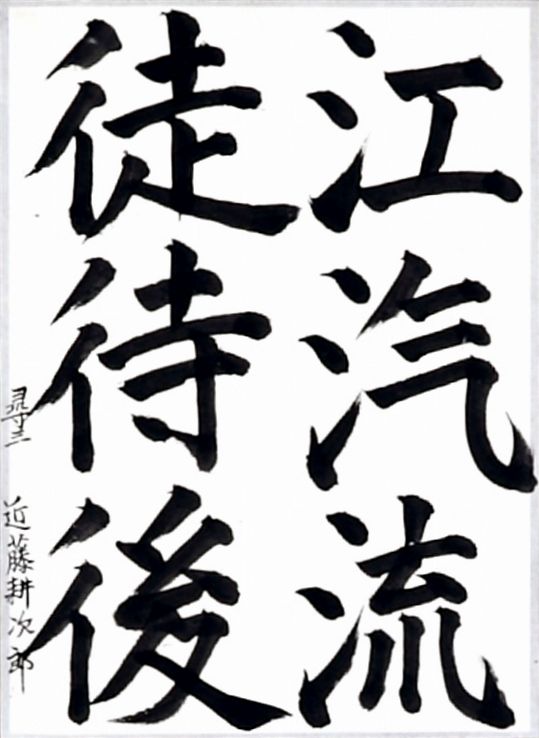 江汽流
徒待後
尋三 近藤耕次郎